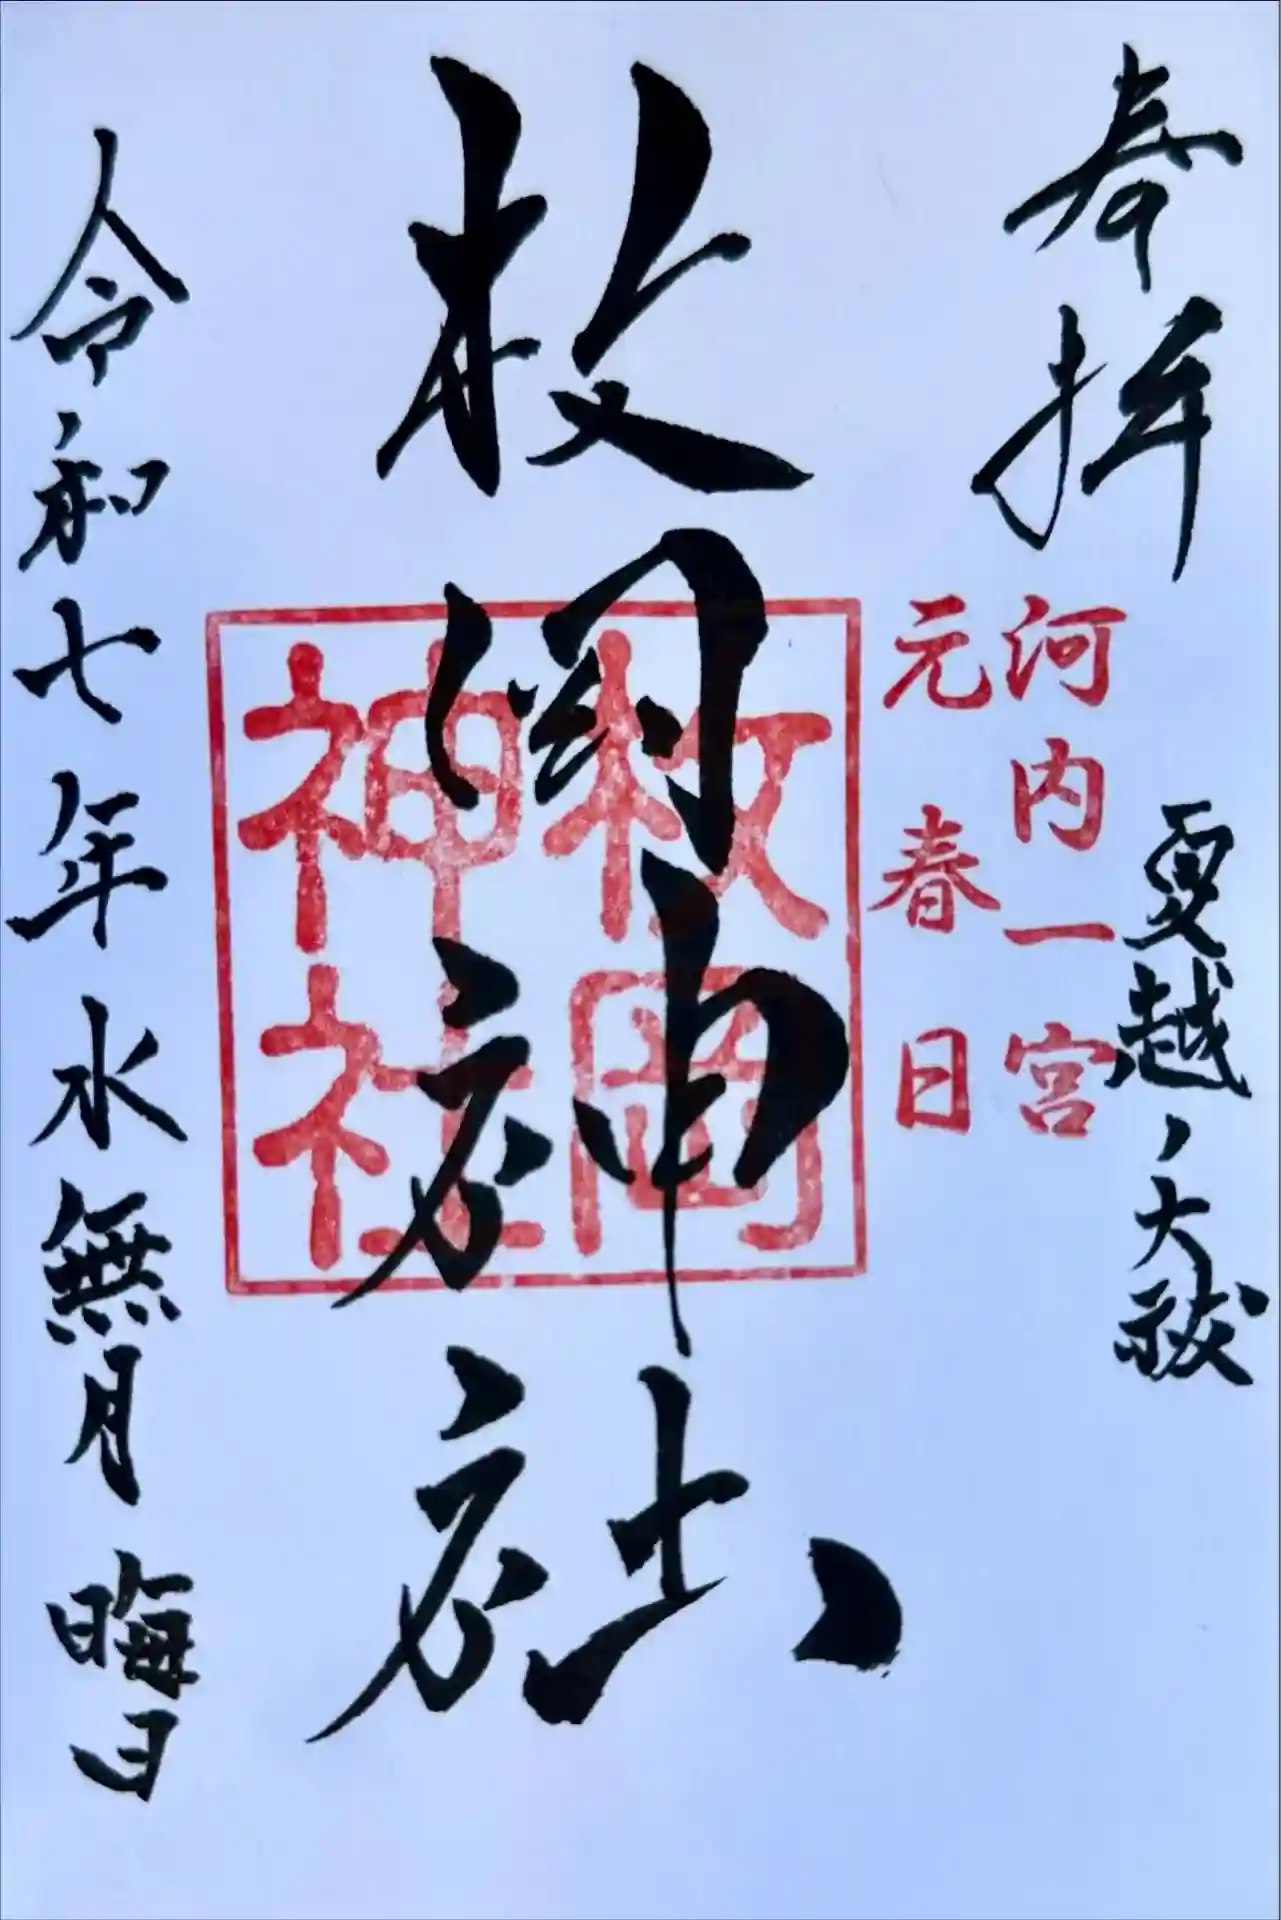 奉拝
夏越ノ大祓
河内一宮
元春日
枚岡神社
枚岡
神社
令和七年水無月晦日